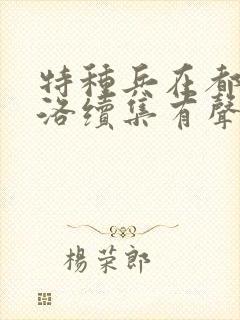 特種兵在都
洛續集有聲
楊荣郎